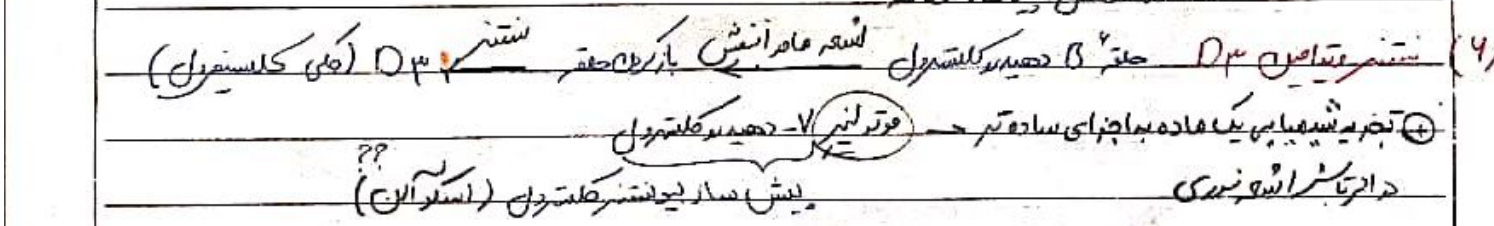 ۶) سنتز ویتامین D۳ حلقه B دهیدروکلسترول اشعه ماورابنفش بازکردن حلقه سنتز D۳ (کلی کلسیفرول)
⊕ تجزیه شیمیایی یک ماده به اجزای ساده تر → فوتولیز ۷- دهیدروکلسترول
در اثر تابش اشعه نوری پیش ساز بیوسنتز کلسترول (اسکوآلن) ??